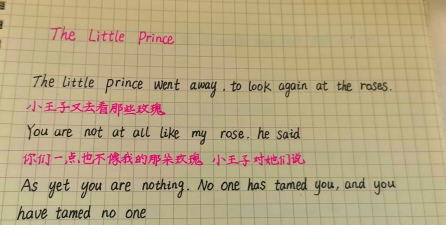 The Little Prince
The little prince went away, to look again at the roses.
小王子又去看那些玫瑰
You are not at all like my rose. he said
你们一点也不像我的那朵玫瑰 小王子对她们说
As yet you are nothing. No one has tamed you, and you
have tamed no one